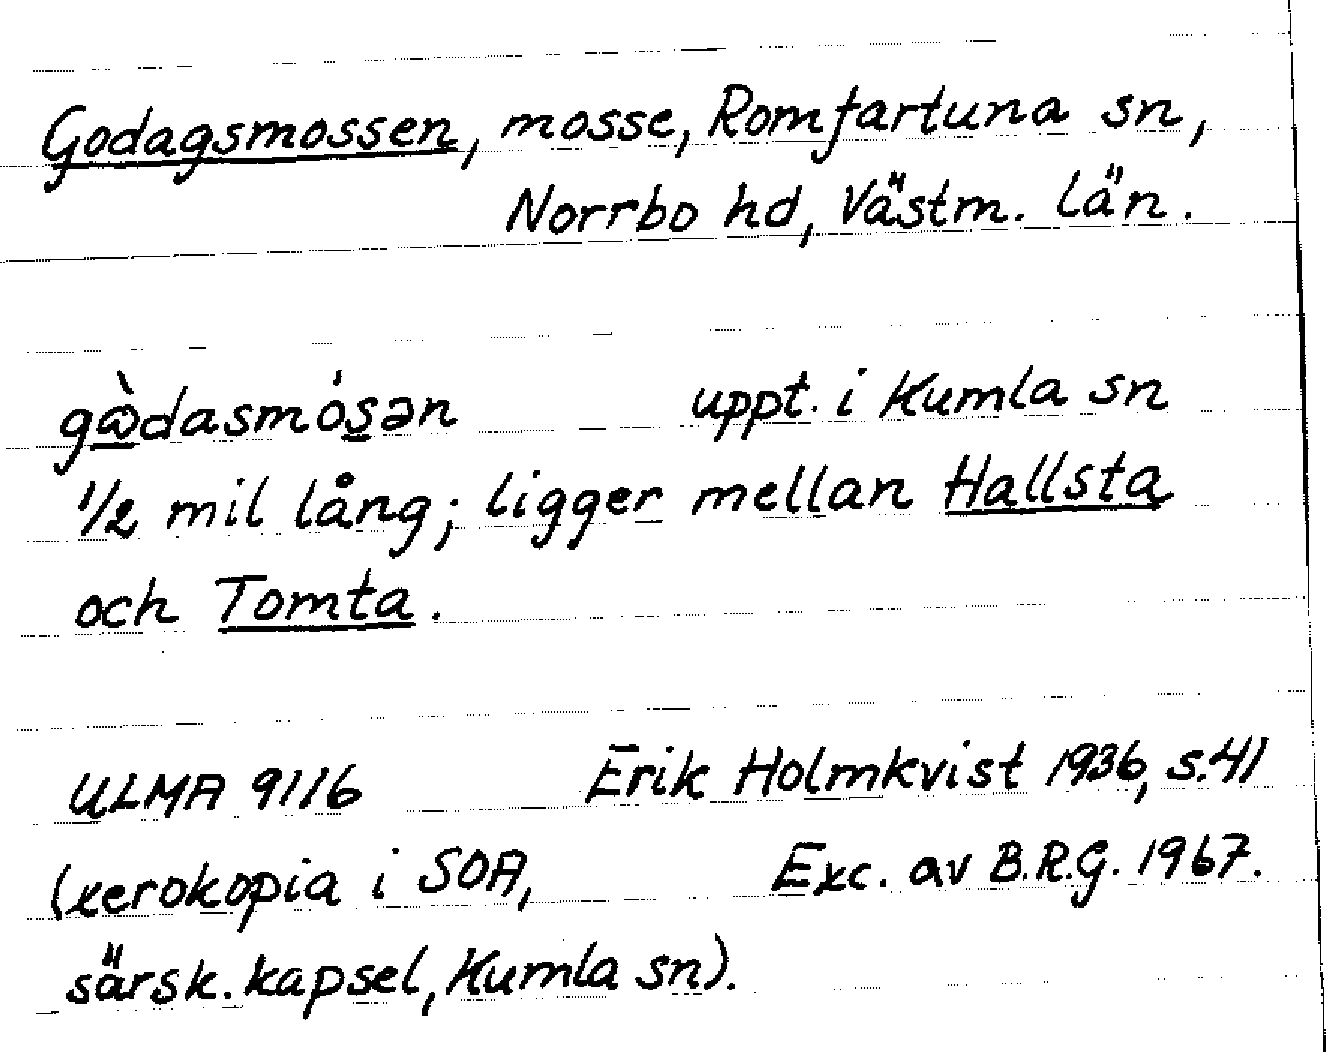 Godagsmossen, mosse, Romfartuna sn,
Norrbo hd, Västm. län.
gὼdasmós̲ən uppt. i Kumla sn
1/2 mil lång; ligger mellan Hallsta
och Tomta.
ULMA 9116 Erik Holmkvist 1936, s.41
(xerokopia i SOA, Exc. av B.R.G. 1967.
särsk. kapsel, Kumla sn).